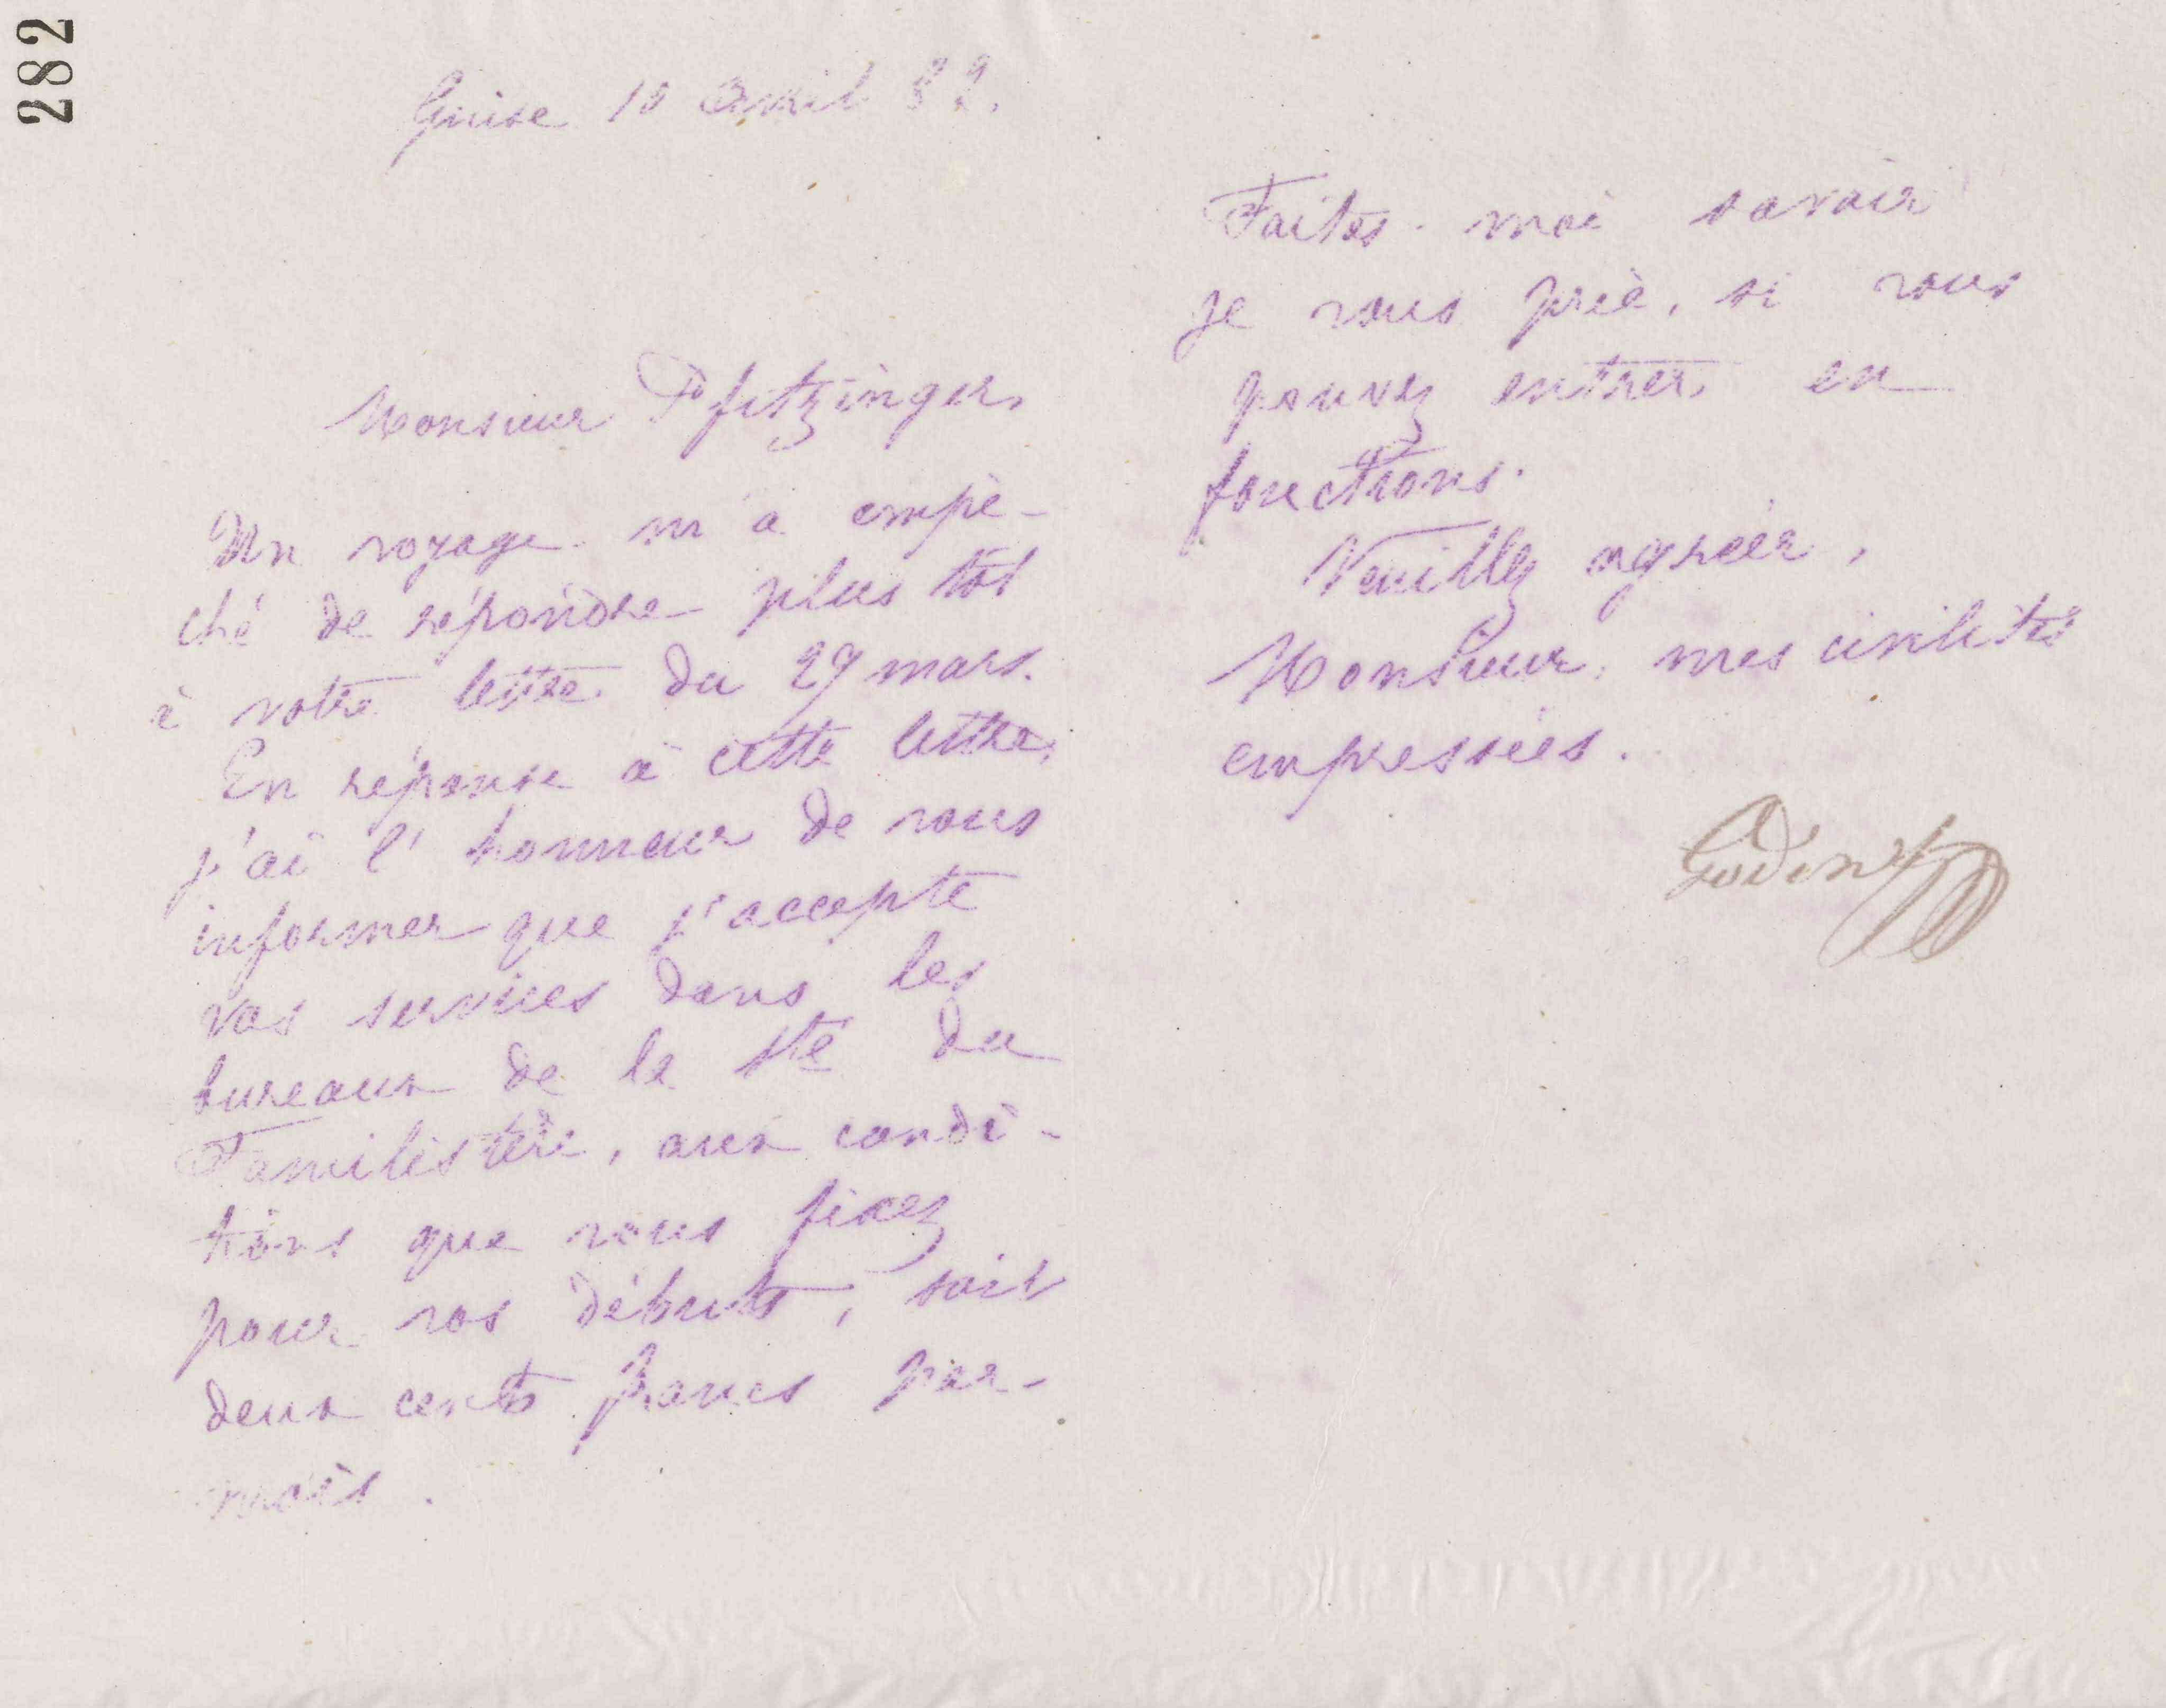 282
Guise 10 Avril 82.
Monsieur Pfitzinger,
Un voyage m'a empê-
ché de répondre plus tôt
à votre lettre du 29 mars.
En réponse à cette lettre,
j'ai l'honneur de vous
informer que j'accepte
vos services dans les
bureaux de la Sté du
Familistère, aux condi-
tions que vous fixez
pour vos débuts, soit
deux cents francs par
mois.
Faites-moi savoir
je vous prie, si vous
pouvez entrer en
fonctions.
Veuillez agréer,
Monsieur, mes civilités
empressées.
Godin